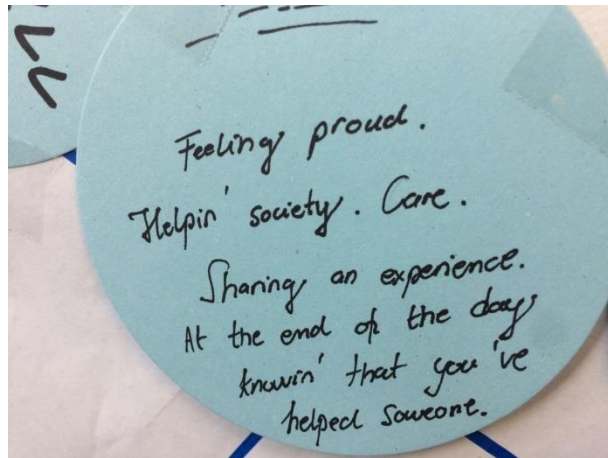 Feeling proud.
Helpin' society. Care.
Sharing an experience.
At the end of the day
knowin' that you've
helped someone.